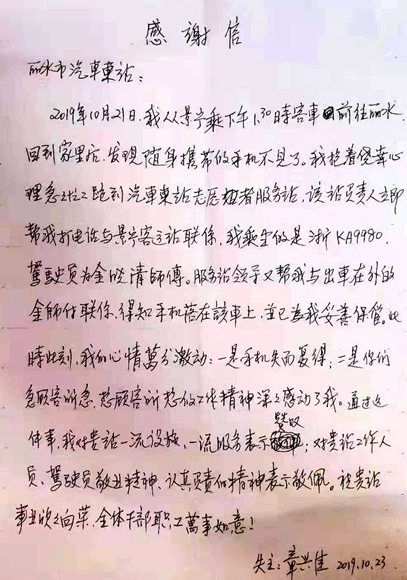 感謝信
丽水市汽車東站：
2019年10月21日，我从景宁乘下午1:30時客車前往丽水，
回到家里后，发現随身携带的手机不見了。我抱着侥幸心
理急忙跑到汽車東站志愿者服务站，该站负责人立即
帮我打电话与景宁客运站联係，我乘坐的是浙KA9980，
駕驶員为金晓清師傅。服务站领导又幫我与出車在外的
金師付联係，得知手机落在該車上，並已為我妥善保管。此
時此刻，我的心情萬分激动：一是手机失而复得，二是你们
急顾客所急，想顾客所想的工作精神深深感动了我。通过这
件事，我对贵站一流設施，一流服务表示赞叹；对贵站工作人
员、駕驶员敬业精神，认真負責的精神表示敬佩。祝贵站
事业欣欣向荣，全体干部职工萬事如意！
失主：章兴佳 2019.10.23